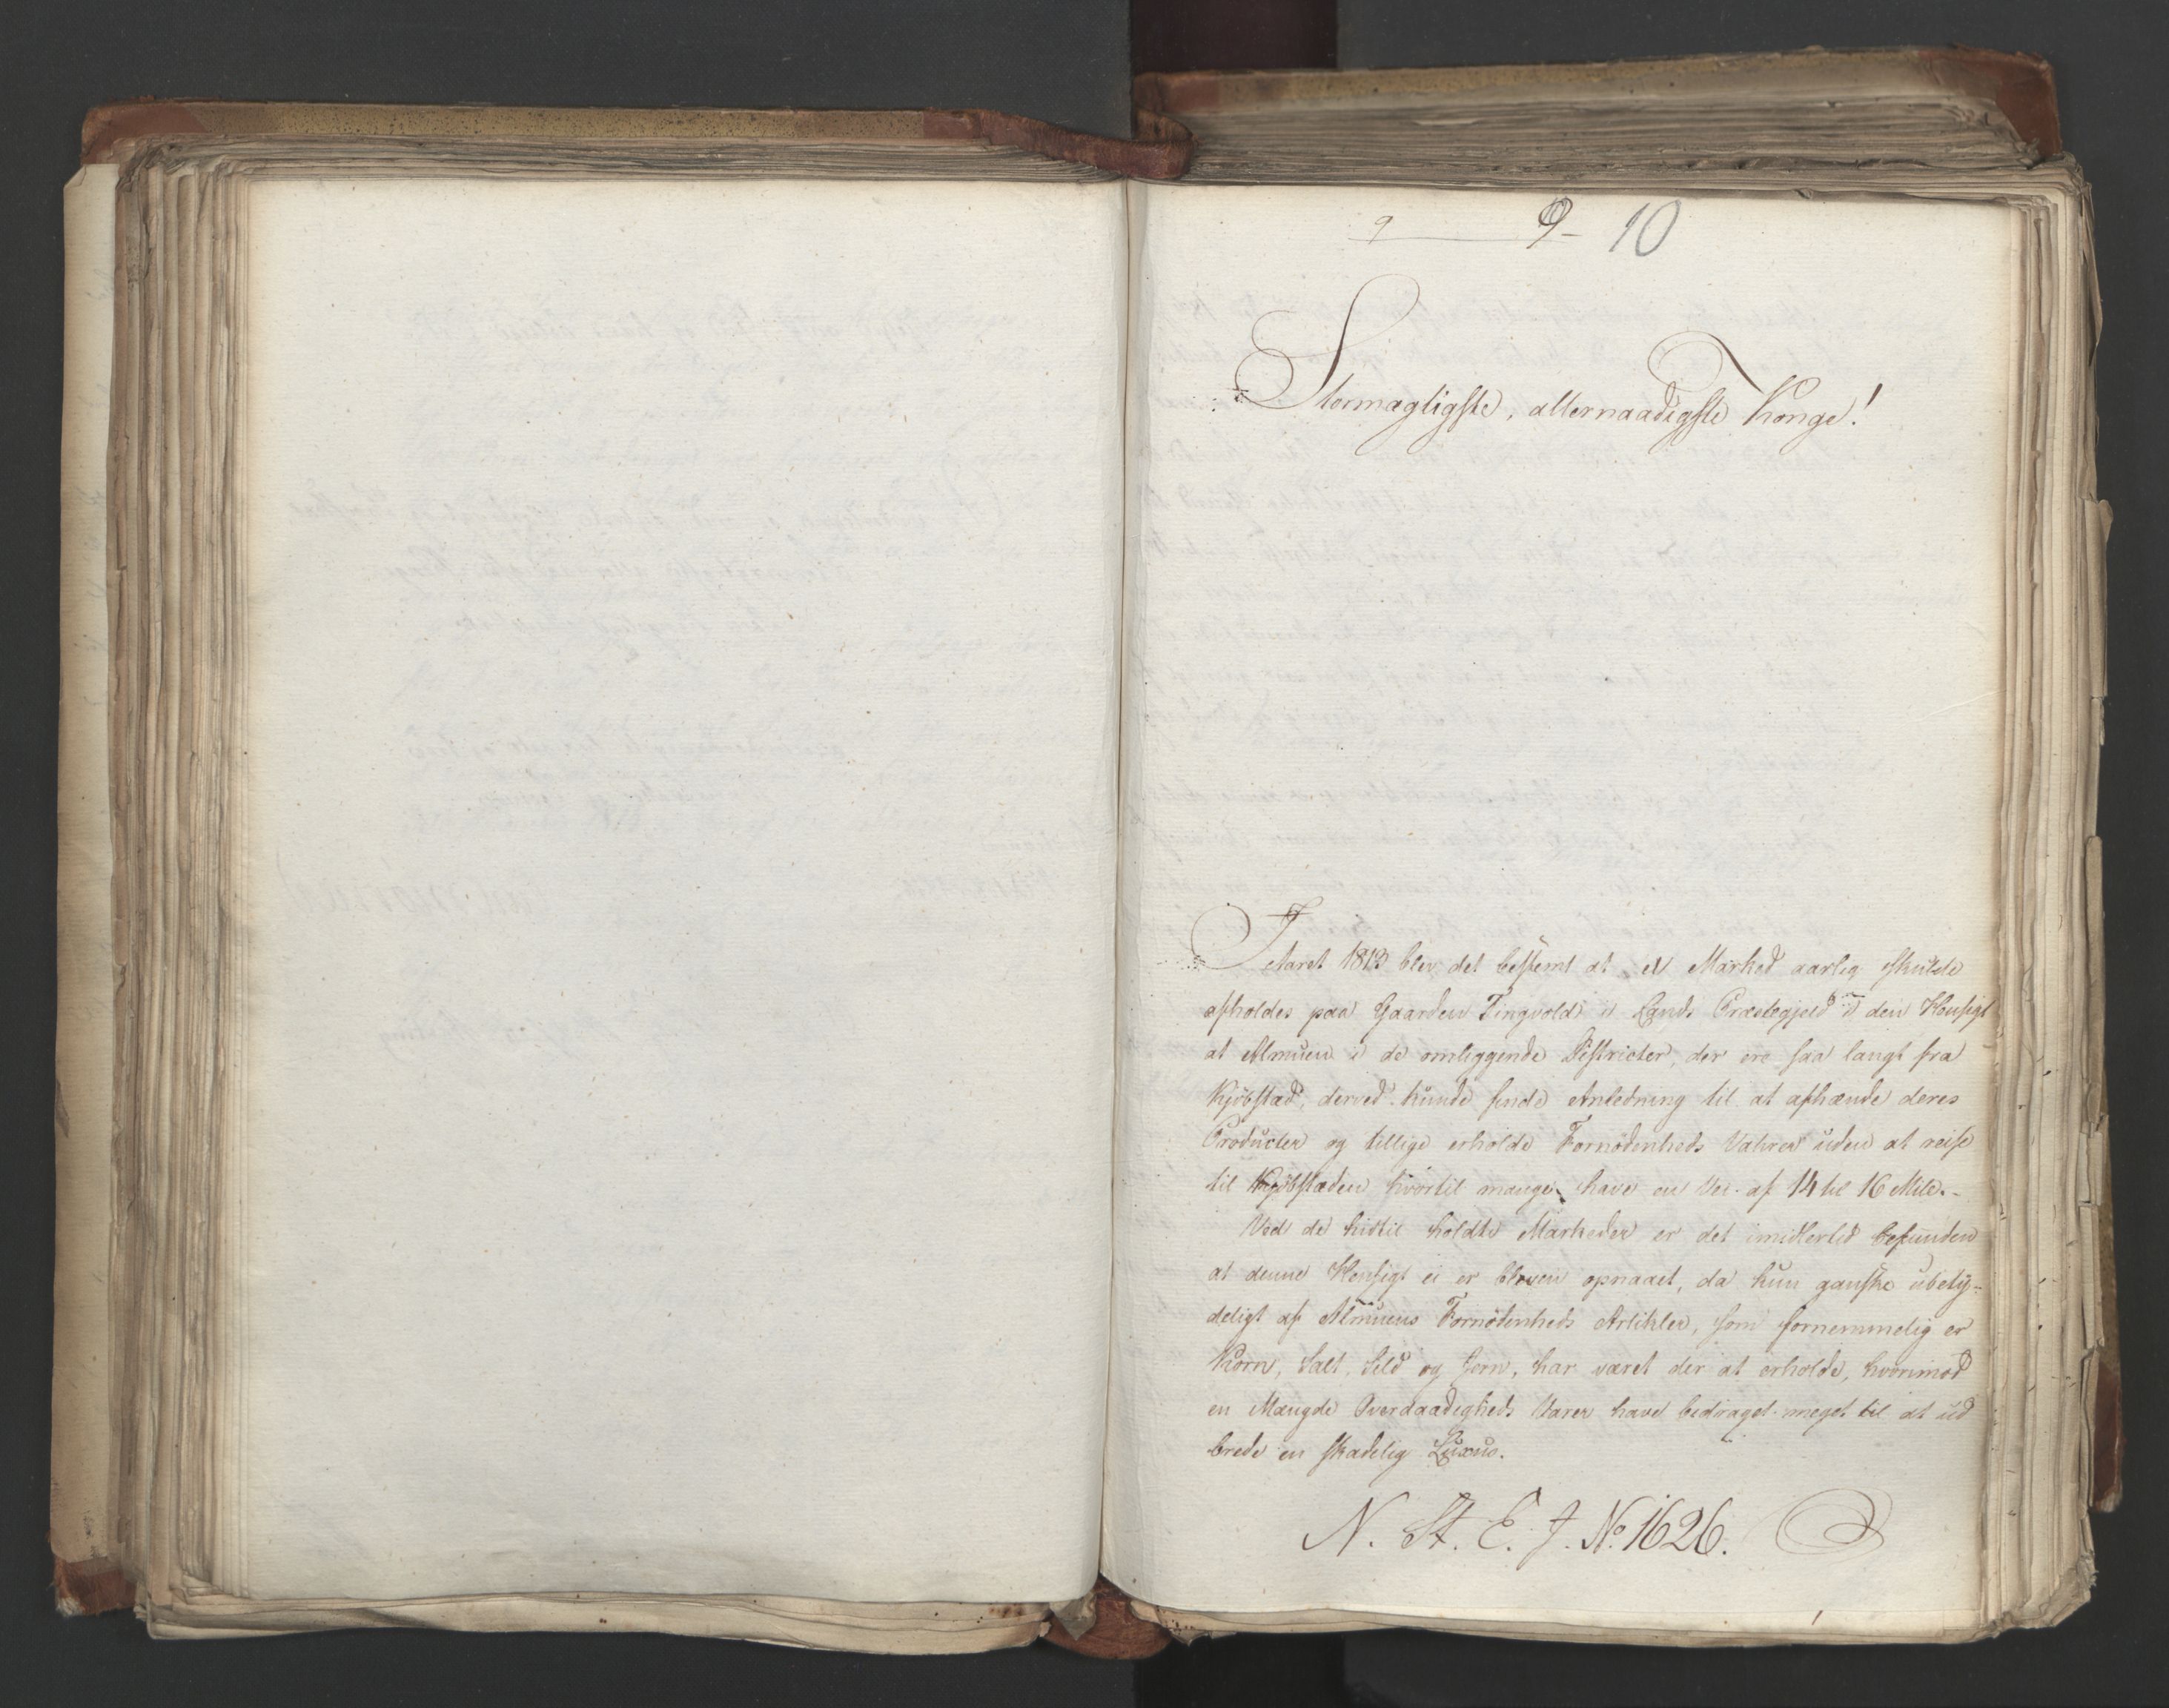 9 9 10
Stormægtigste, allernaadigste Konge!
I Aaret 1813 blev det bestemt at et Marked aarlig skulde
afholdes paa Gaarden Tingvold i Lands Præstegjeld i den Hensigt
at Almuen i de omliggende Districter, der ere saa langt fra
Kjöbstæd, derved kunde finde Anledning til at afhænde deres
Producter og tillige erholde Fornödenheds Vahrer uden at reise
til Kjöbstæden hvortil mange have en Vei af 14 til 16 Mile.-
Ved de hidtil holdte Markeder er det imidlertid befunden
at denne Hensigt ei er bleven opnaaet, da kun ganske ubety-
deligt af Almuens Fornödenheds Artikler, som fornemmelig er
Korn, Salt, Sild og Jern, har været der at erholde, hvorimod
en Mængde Overdaadigheds Varer have bidraget meget til at ud
brede en skadelig Luxus.
N. St. E. J. No. 1626.